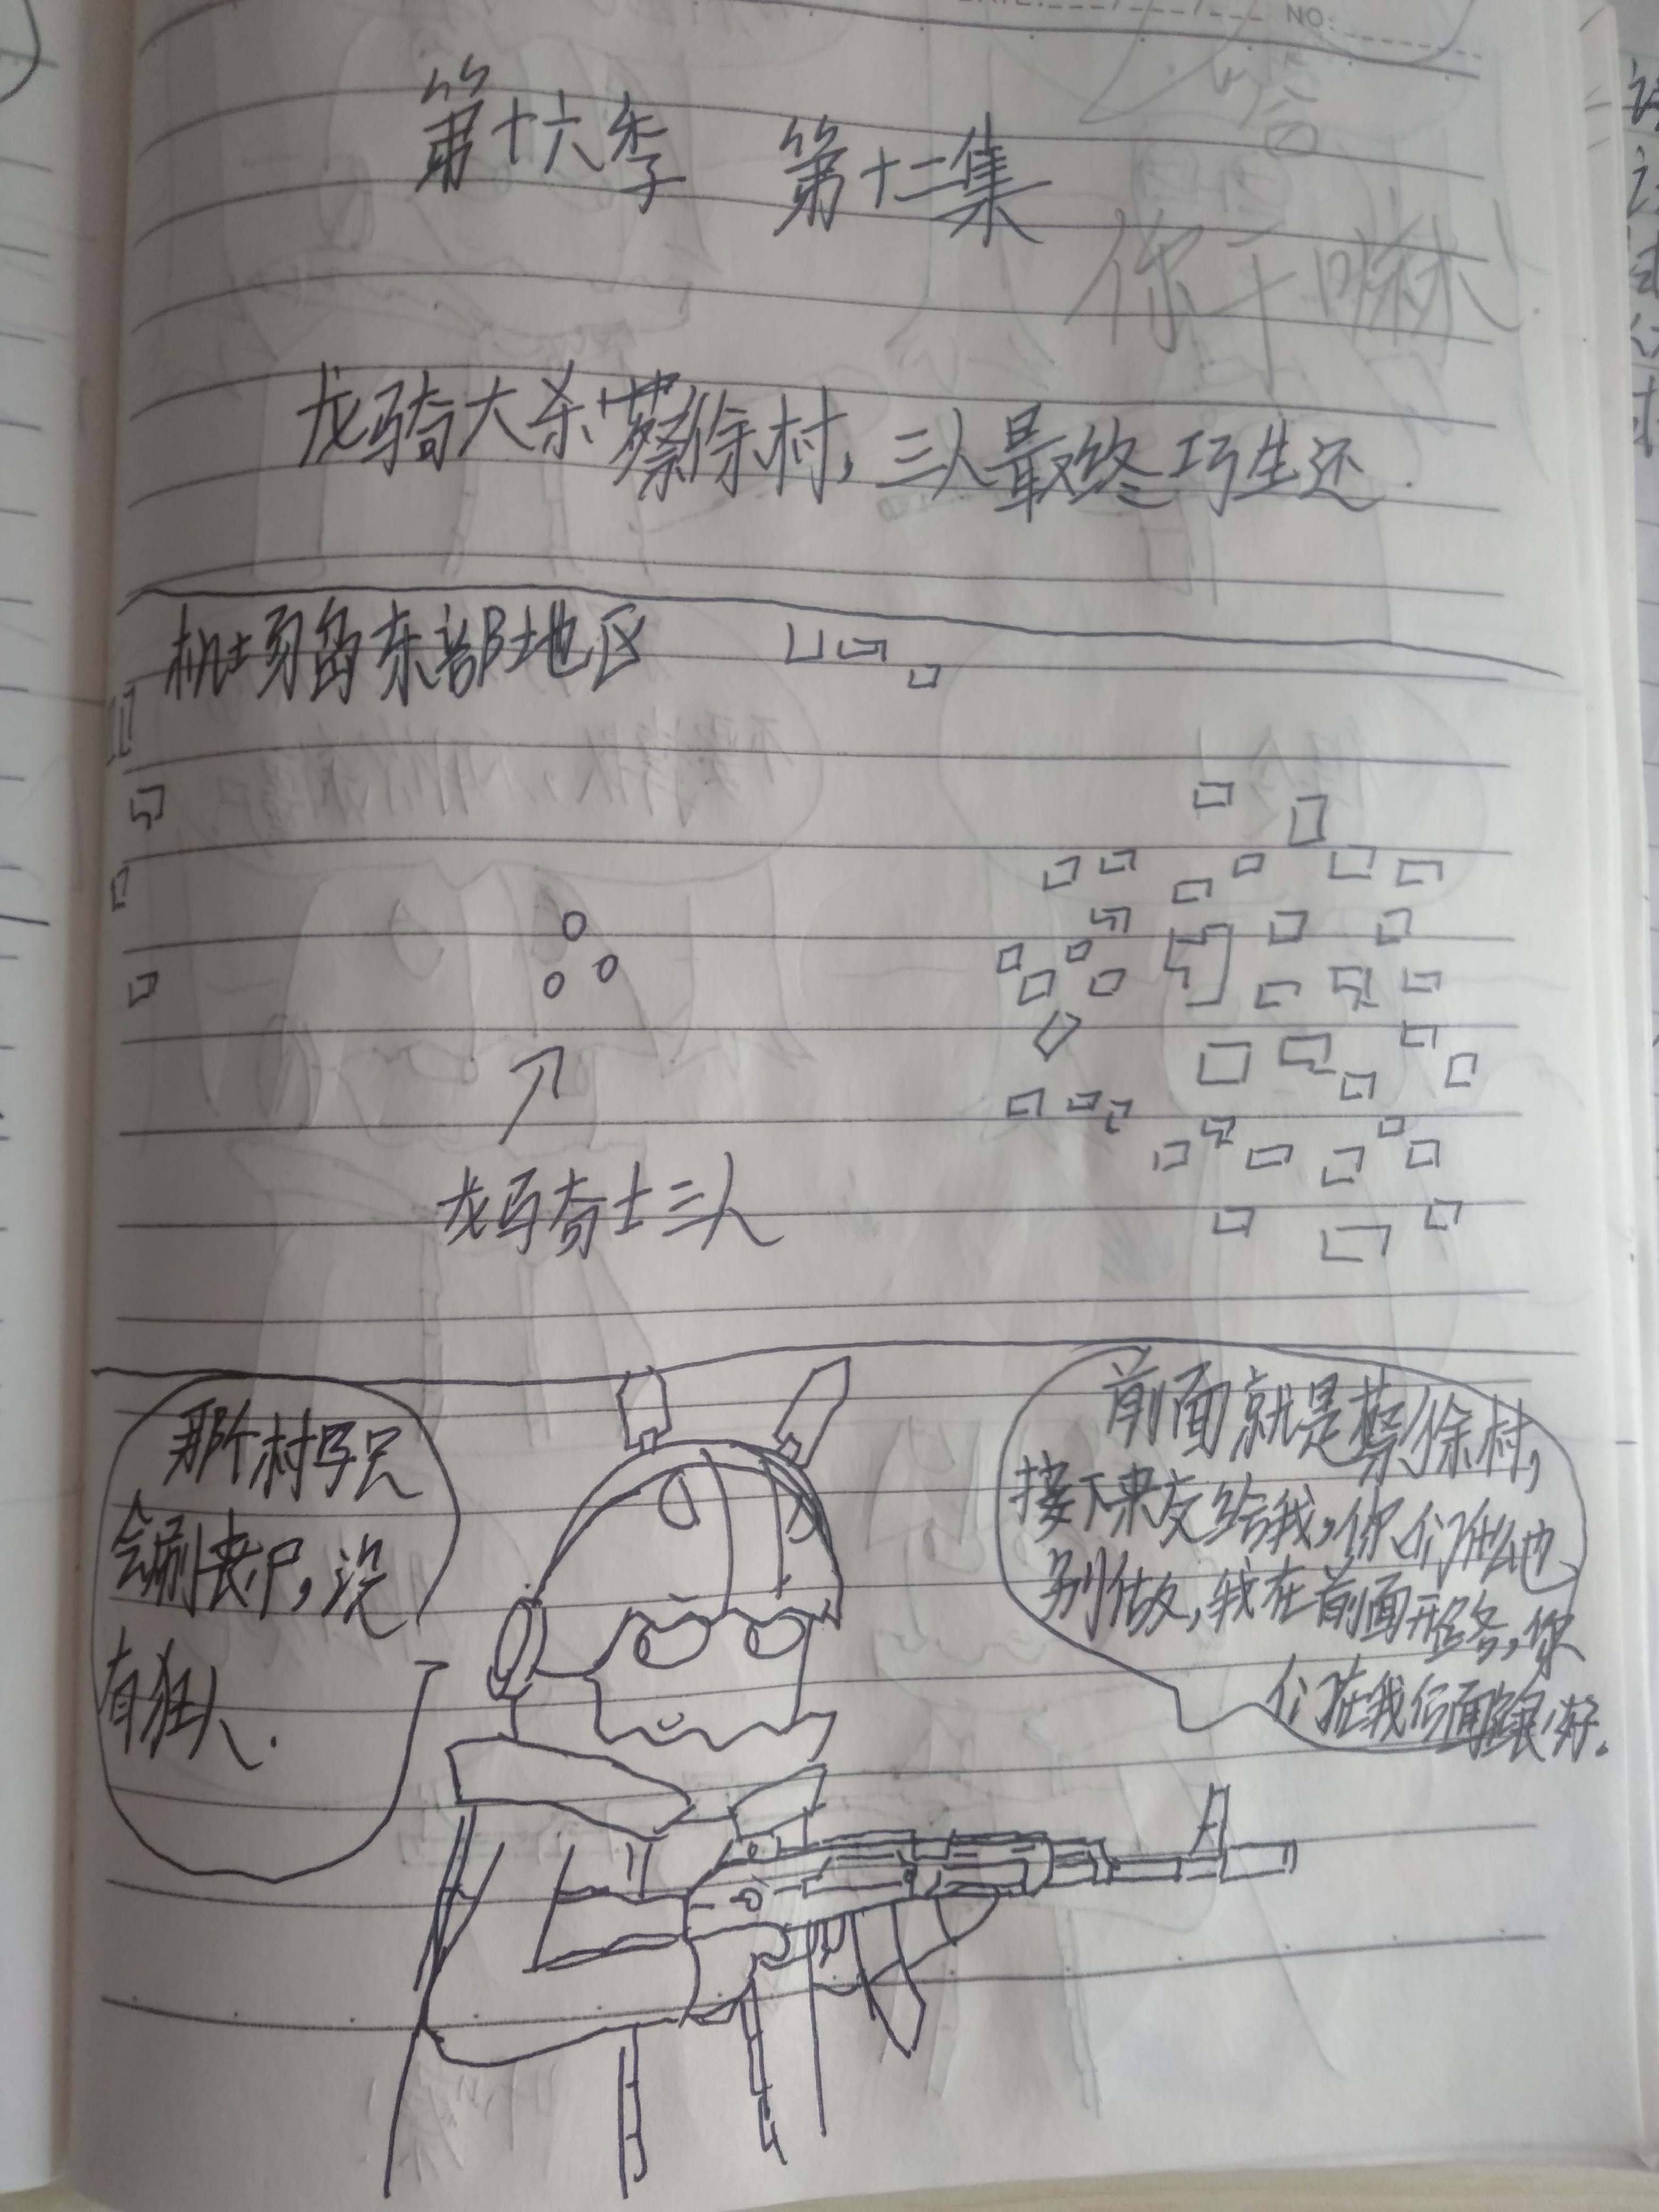 NO:
第十六季 第十二集
你干嘛!
龙骑大杀蔡徐村,三人最终巧生还.
东部地区
龙骑士三人
那个村子只
会刷丧尸,没
有狂人.
前面就是蔡徐村,
接下来交给我,你们什么也
别做,我在前面开路,你
们在我后面跟好.